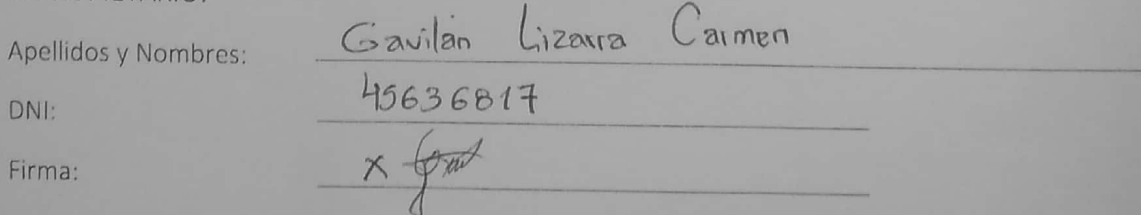 Apellidos y Nombres: Gavilán Lizarra Carmen
DNI: 45636817
Firma: x